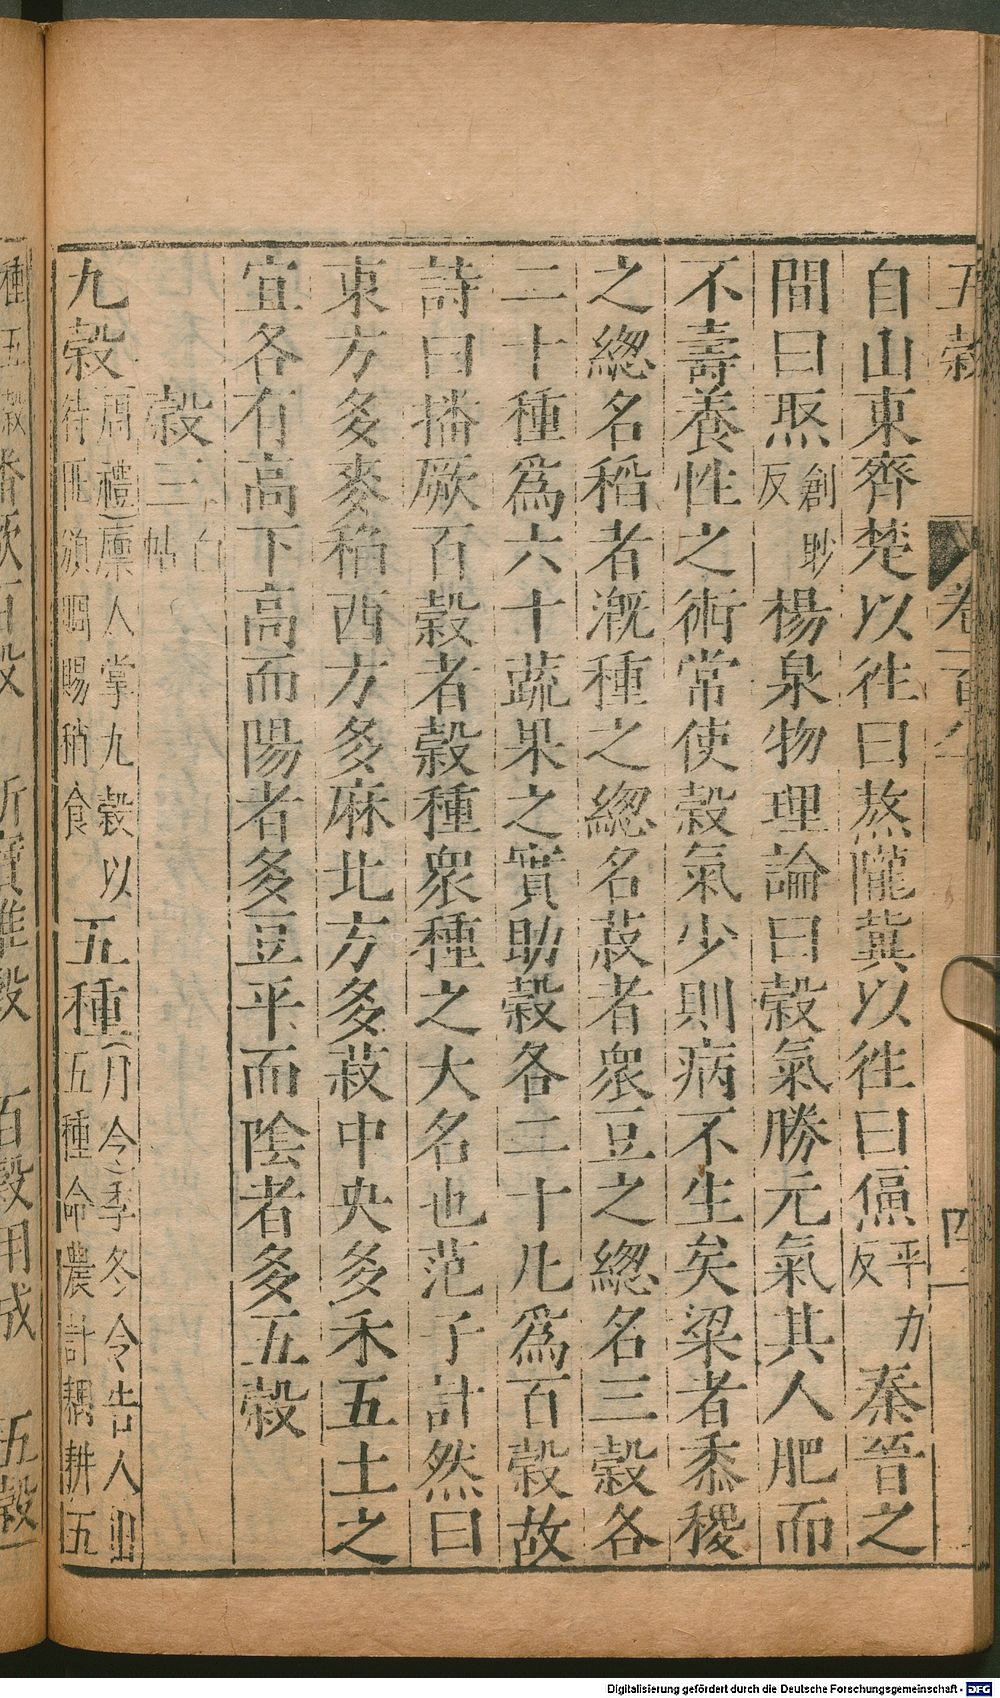 五穀 卷一百八 四
自山東齊楚以往曰熬隴冀以往曰㷶平力反秦晉之
間曰㷅創眇反楊泉物理論曰穀氣勝元氣其人肥而
不壽養性之術常使穀氣少則病不生矣梁者黍稷
之緫名稻者溉種之緫名菽者衆豆之緫名三穀各
二十種爲六十蔬果之實助穀各二十凡爲百穀故
詩曰播厥百穀者穀種衆種之大名也范子計然曰
東方多麥稻西方多麻北方多菽中央多禾五土之
宜各有高下高而陽者多豆平而陰者多五穀
穀三 白帖
九穀周禮廩人掌九穀以待匪頒賙賜稍食五種月令季冬令告人出五種命農計耦耕五
Digitalisierung gefördert durch die Deutsche Forschungsgemeinschaft - DFG